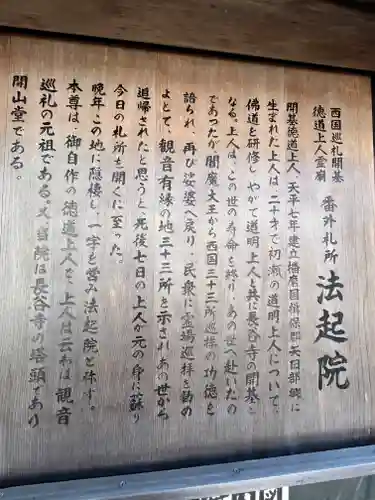 西国巡礼開基
徳道上人霊廟
番外札所
法起院
開基徳道上人、天平七年建立播磨国揖保郡矢田部郷に
生まれた上人は二十才で初瀬の道明上人について、
佛道を研修しやがて道明上人と共に長谷寺の開基と
なる。上人は、この世の寿命を終り、あの世へ赴いたの
であったが閻魔大王から西国三十三所巡拝の功徳を
語られ、再び娑婆へ戻り、民衆に霊場巡拝を勧め
よとて、観音有縁の地三十三所を示されあの世から
追帰されたと思うと死後七日の上人が元の身に蘇り
今日の札所を開くに至った。
晩年この地に隠棲し一宇を営み法起院と称す。
本尊は、御自作の徳道上人を、上人は云わば観音
巡礼の元祖である。又当院は長谷寺の塔頭であり
開山堂である。